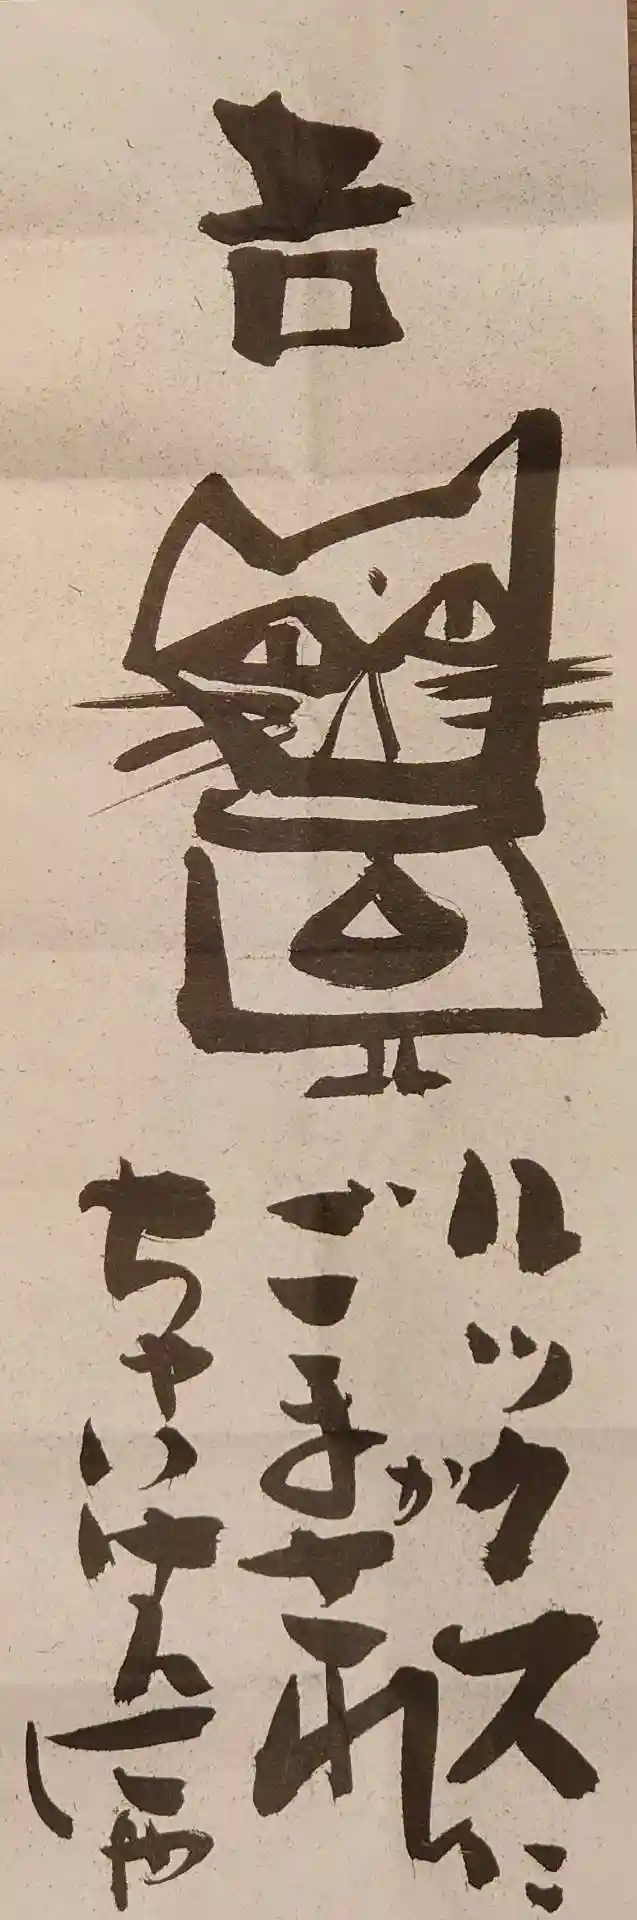 吉
ルックスに
ごまかされ
ちゃいけんにゃ